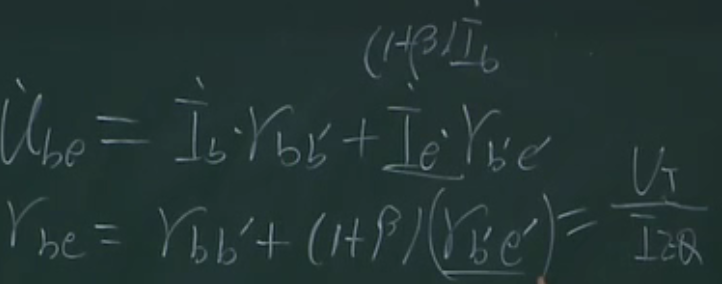 (1+β)İb
U̇be = İb·rbb′ + İe·rb′e′
rbe = rbb′ + (1+β)(rb′e′) = UT / IEQ